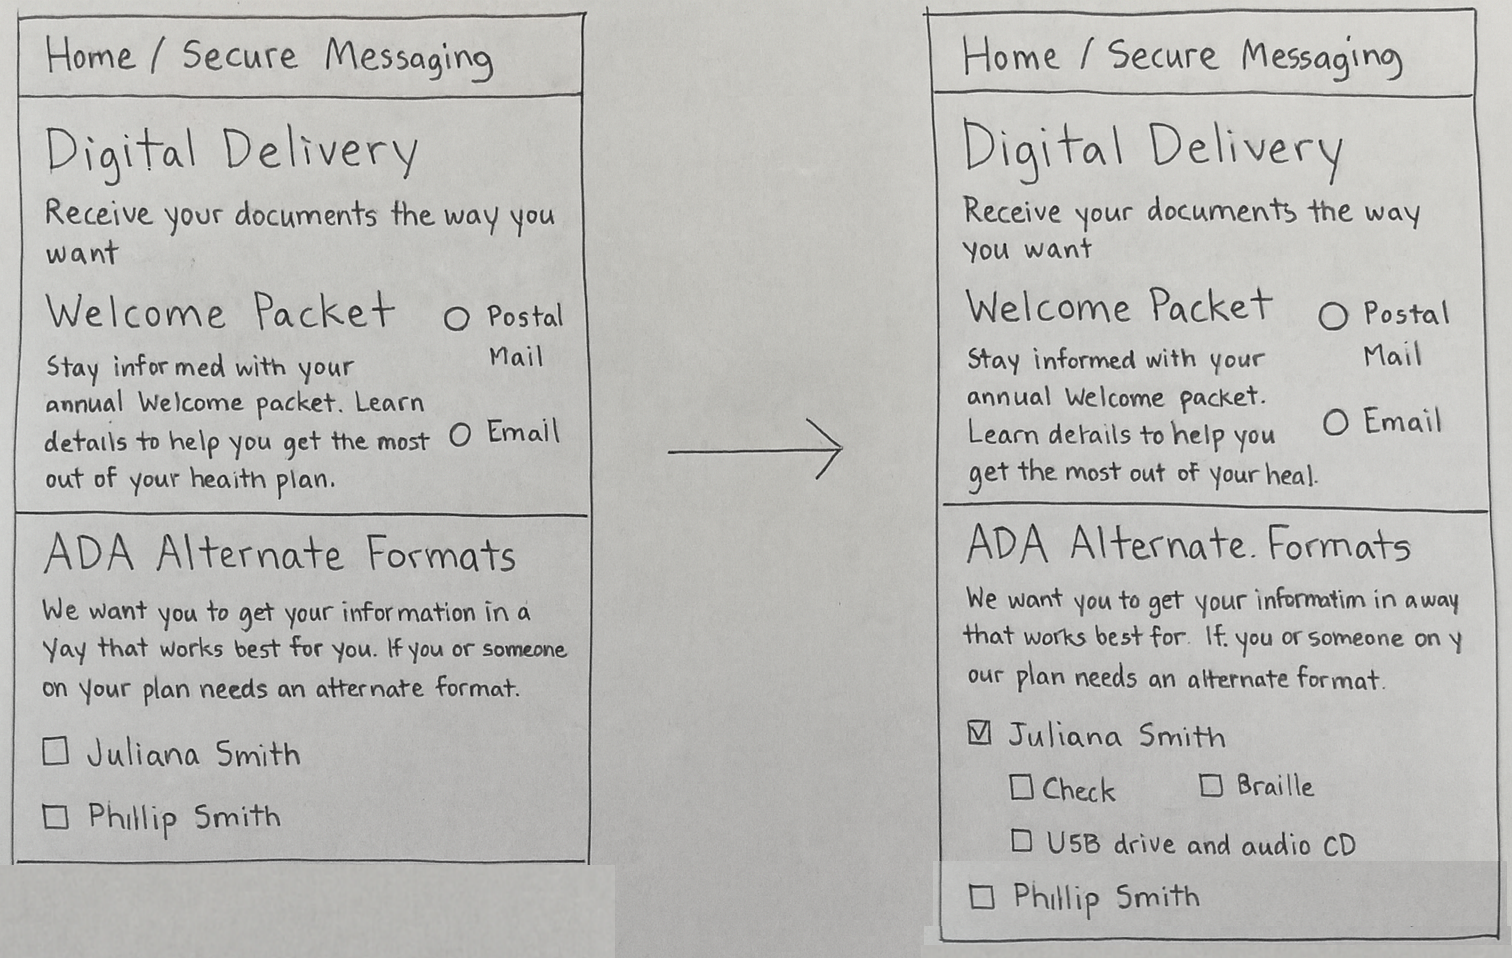 Home / Secure Messaging
Digital Delivery
Receive your documents the way you
want
Welcome Packet
Postal
Mail
Stay informed with your
annual Welcome packet. Learn
details to help you get the most
out of your heaith plan.
Email
ADA Alternate Formats
We want you to get your information in a
yay that works best for you. If you or someone
on your plan needs an atternate format.
Juliana Smith
Phillip Smith
Home / Secure Messaging
Digital Delivery
Receive your documents the way
you want
Welcome Packet
Postal
Mail
Stay informed with your
annual Welcome packet.
Learn details to help you
get the most out of your heal.
Email
ADA Alternate. Formats
We want you to get your informatim in a way
that works best for. If. you or someone on y
our plan needs an alternate format.
Juliana Smith
Check
Braille
USB drive and audio CD
Phillip Smith